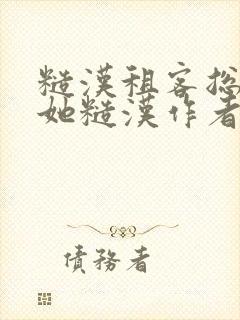 糙漢租客总
她糙漢作者
債務者